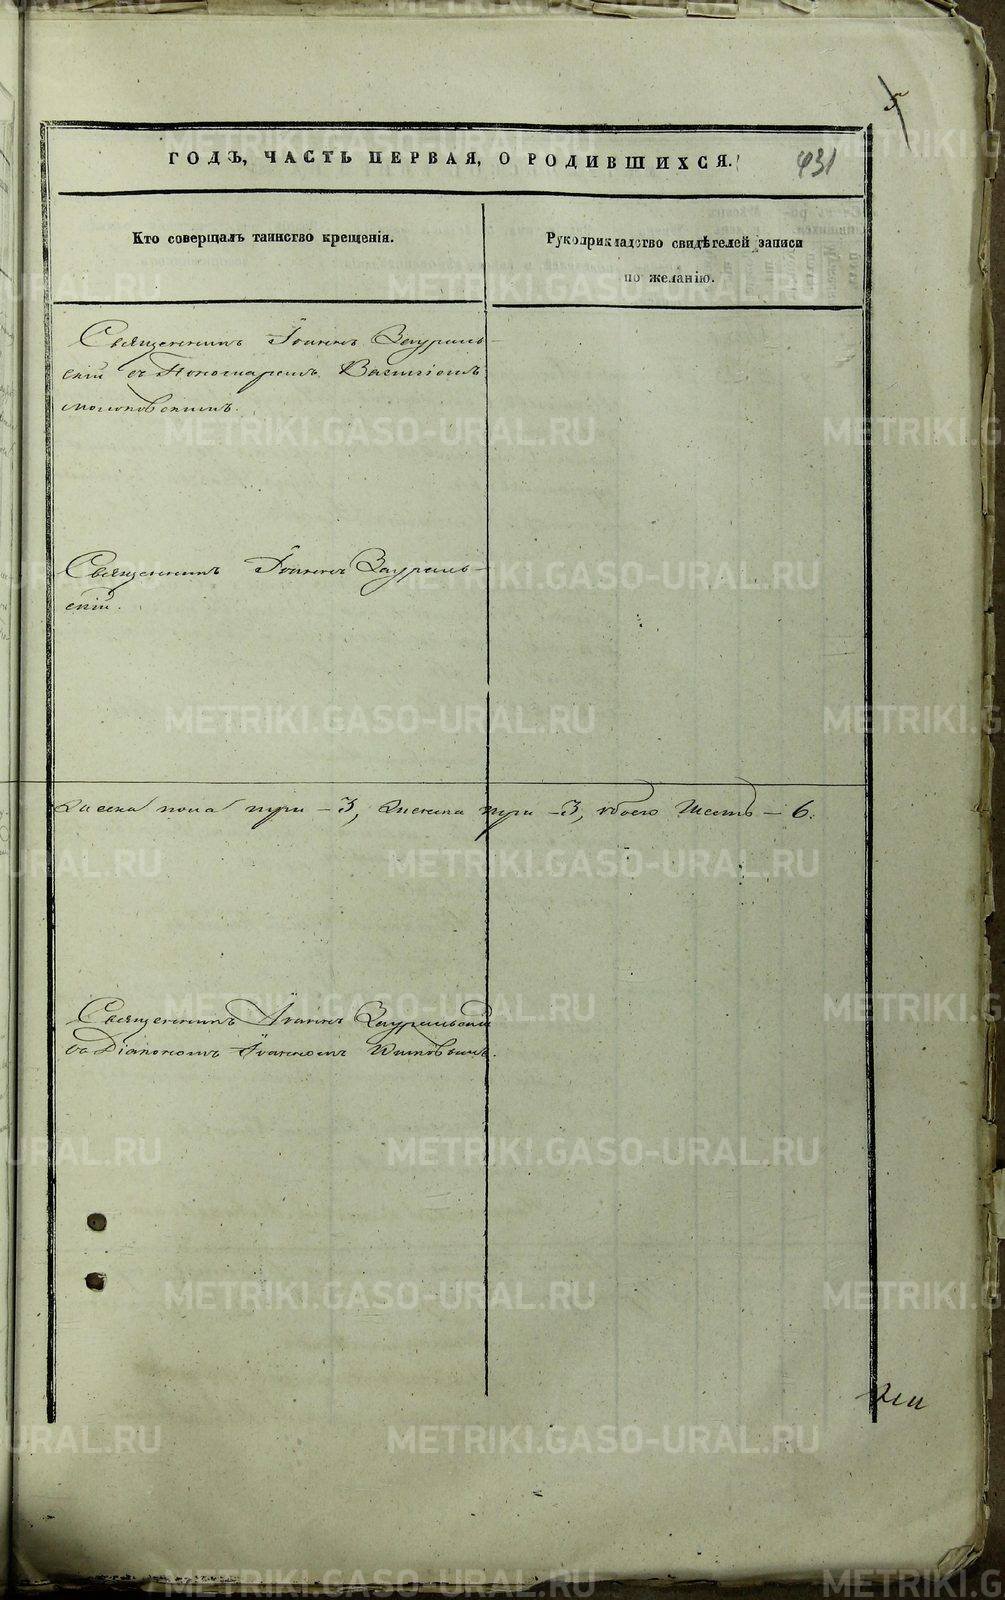 5
ГОДЪ, ЧАСТЬ ПЕРВАЯ, О РОДИВШИХСЯ.
431
Кто совершалъ таинство крещенія.
Рукоприкладство свидѣтелей записи
по желанію.
Священникъ Іоаннъ Заураль-
скій съ Пономаремъ Василіемъ
Священникъ Іоаннъ Заураль-
скій.
пола три – 3, три – 3, обоего шесть – 6.
Священникъ Іоаннъ Зауральскій
съ Діакономъ Іоанномъ
METRIKI.GASO-URAL.RU